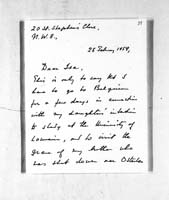 20 St. Stephen's Close,
N.W.8.
28 February 1959.
Dear Isa,
This is only to say that I
have to go to Belgium
for a few days in connection
with my daughter's intention
to study at the University of
Louvain, and to visit the
grave of my brother who
was shot down near Ostende